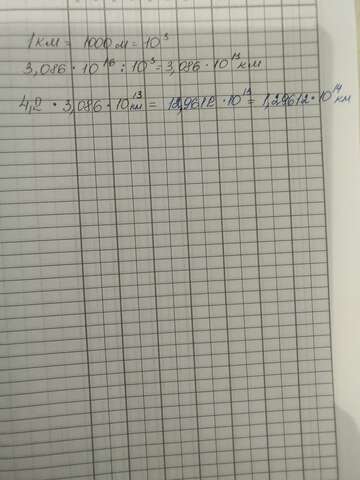 1 км = 1000 м = 10³
3,086 · 10¹⁶ : 10³ = 3,086 · 10¹³ км
4,2 · 3,086 · 10¹³ км = 12,9612 · 10¹³ = 1,29612 · 10¹⁴ км